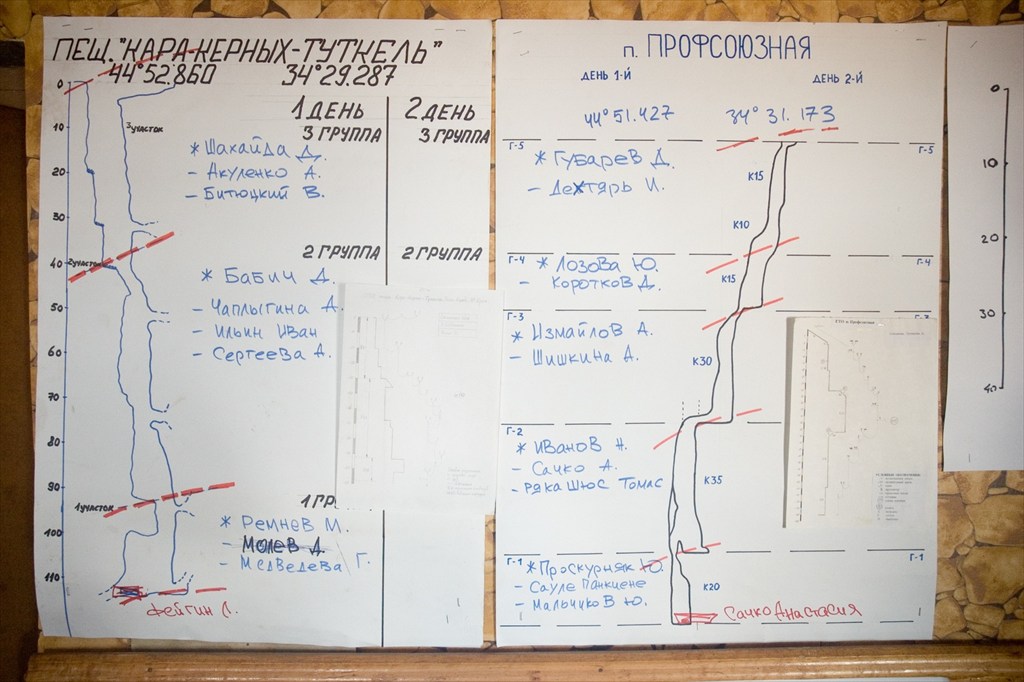 ПЕЩ. "КАРА-КЕРНЫХ-ТУТКЕЛЬ"
44°52.860 34°29.287
1 ДЕНЬ 2 ДЕНЬ
3 ГРУППА 3 ГРУППА
3 участок
* Шахайда Д.
- Акуленко А.
- Битюцкий В.
2 ГРУППА 2 ГРУППА
2 участок
* Бабич Д.
- Чаплыгина А.
- Ильин Иван
- Сергеева А.
1 ГР
1 участок
* Ремнев М.
- Молев Д
- Медведева Г.
Фейгин Л.
0
10
20
30
40
50
60
70
80
90
100
110
п. ПРОФСОЮЗНАЯ
ДЕНЬ 1-Й ДЕНЬ 2-Й
44°51.427 34°31.173
Г-5 Г-5
* Губарев Д.
- Дехтярь И.
К15
К10
Г-4 Г-4
* Лозова Ю.
- Коротков Д.
К15
Г-3
* Измайлов А.
- Шишкина А.
К30
Г-2
* Иванов Н.
- Сачко А.
- Рякашюс Томас
К35
Г-1 Г-1
* Проскурняк Ю.
- Сауле Панкиене
- Мальчиков Ю.
К20
Сачко Анастасия
0
10
20
30
40